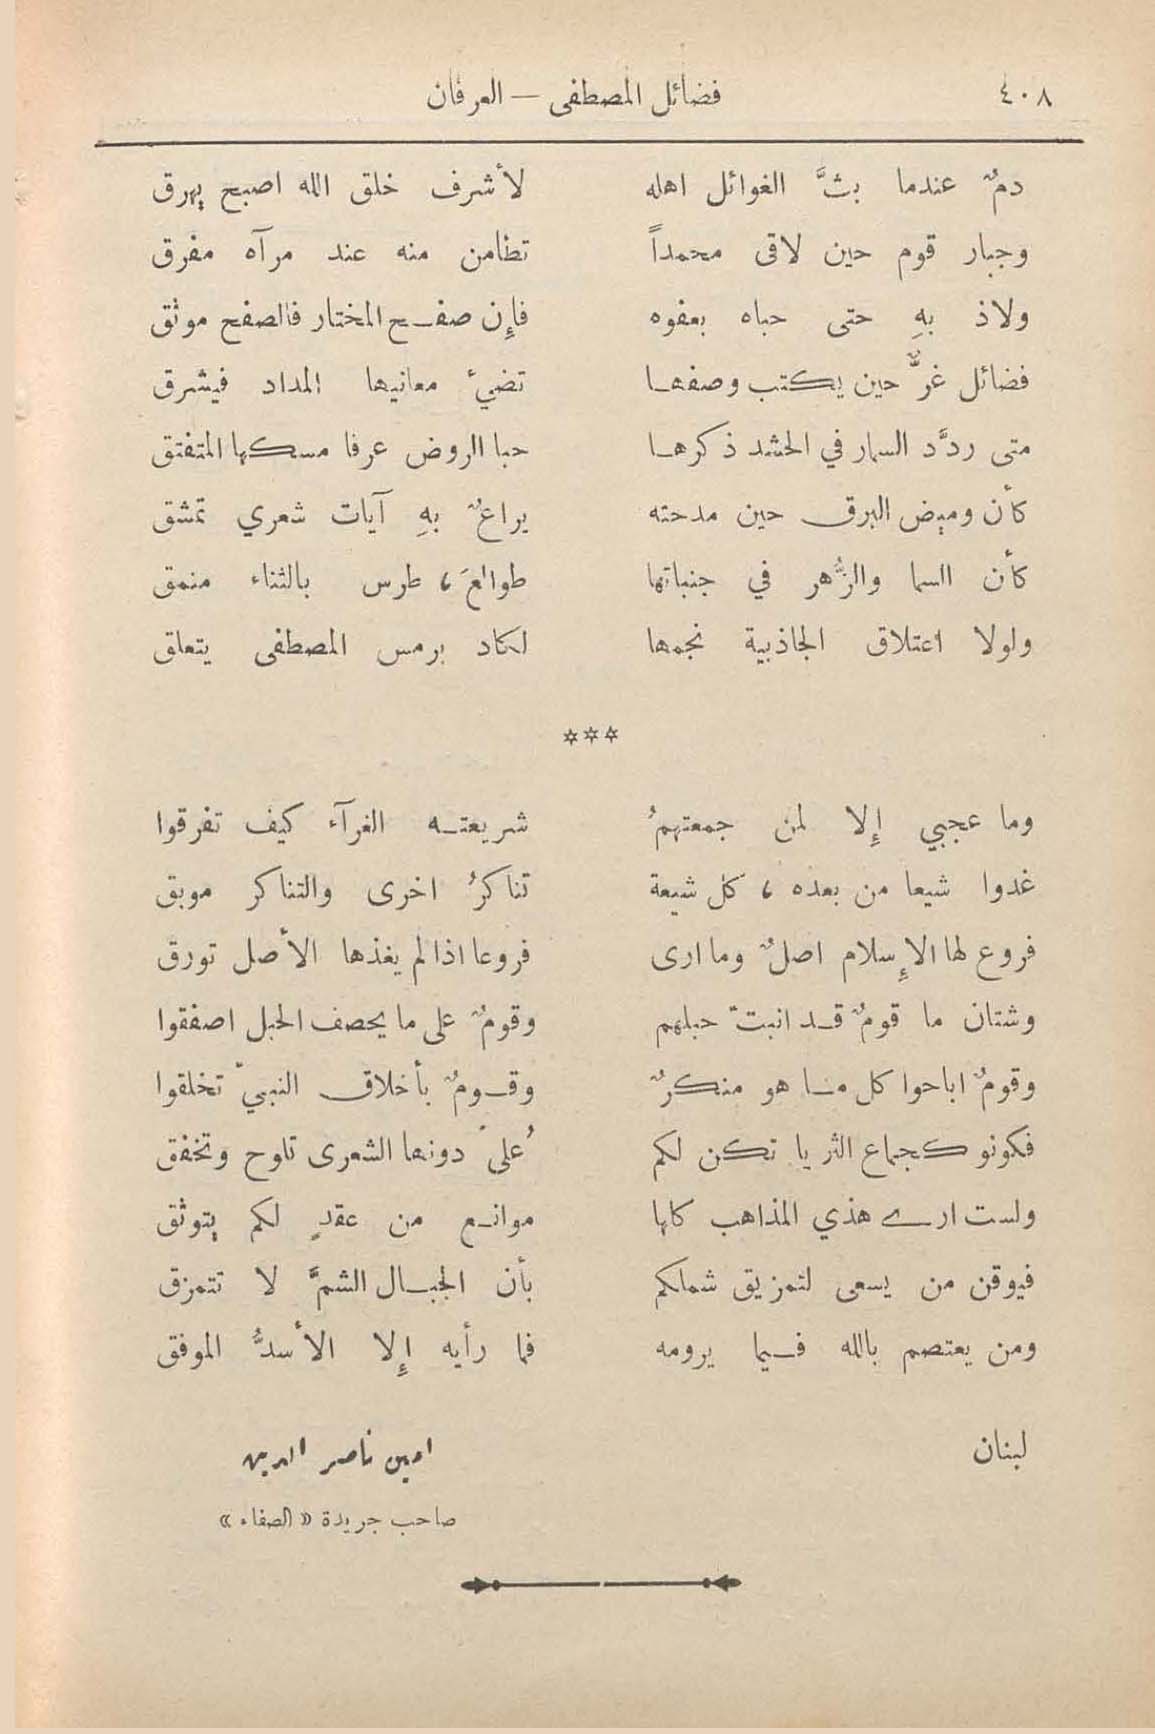 ٤٠٨ فضائل المصطفى — العرفان
دمٌ عندما بثَّ الغوائل اهله لأشرف خلق الله اصبح يهرق
وجبار قوم حين لاقى محمداً تطامن منه عند مرآه مفرق
ولاذ بهِ حتى حباه بعفوه فإن صفح المختار فالصفح موثق
فضائل غرٌّ حين يكتب وصفها تضيءُ معانيها المداد فيشرق
متى ردَّد السمار في الحشد ذكرها حبا الروض عرفا مسكها المتفتق
كأن وميض البرق حين مدحته يراعٌ بهِ آيات شعري تمشق
كأن السما والزُّهر في جنباتها طوالعَ ، طرس بالثناء منمق
ولولا اعتلاق الجاذبية نجمها لكاد برمس المصطفى يتعلق
***
وما عجبي إِلا لمن جمعتهمُ شريعته الغرآء كيف تفرقوا
غدوا شيعا من بعده ، كل شيعة تناكرُ اخرى والتناكر موبق
فروع لها الإِسلام اصلٌ وما ارى فروعا اذا لم يغذها الأصل تورق
وشتان ما قومٌ قد انبتّ حبلهم وقومٌ على ما يحصف الحبل اصفقوا
وقومٌ اباحوا كل ما هو منكرٌ وقومٌ بأخلاق النبيّ تخلقوا
فكونو كجماع الثريا تكن لكم عُلىً دونها الشعرى تلوح وتخفق
ولست ارى هذي المذاهب كلها موانع من عقدٍ لكم يتوثق
فيوقن من يسعى لتمزيق شملكم بأن الجبال الشمَّ لا تتمزق
ومن يعتصم بالله فيما يرومه فما رأيه إِلا الأسدُّ الموفق
لبنان امين ناصر الدين
صاحب جريدة «الصفاء»